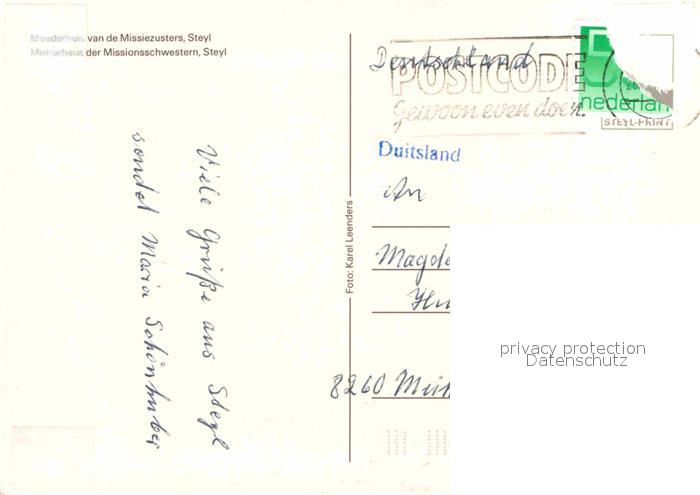 Moederhuis van de Missiezusters, Steyl
Mutterhaus der Missionsschwestern, Steyl
Viele Grüße aus Steyl
sendet Maria Schönhuber
Foto: Karel Leenders
Deutschland
POSTCODE
Gewoon even doen.
nederlan
STEYL-PRINT
Duitsland
An
Magd
8260
privacy protection
Datenschutz